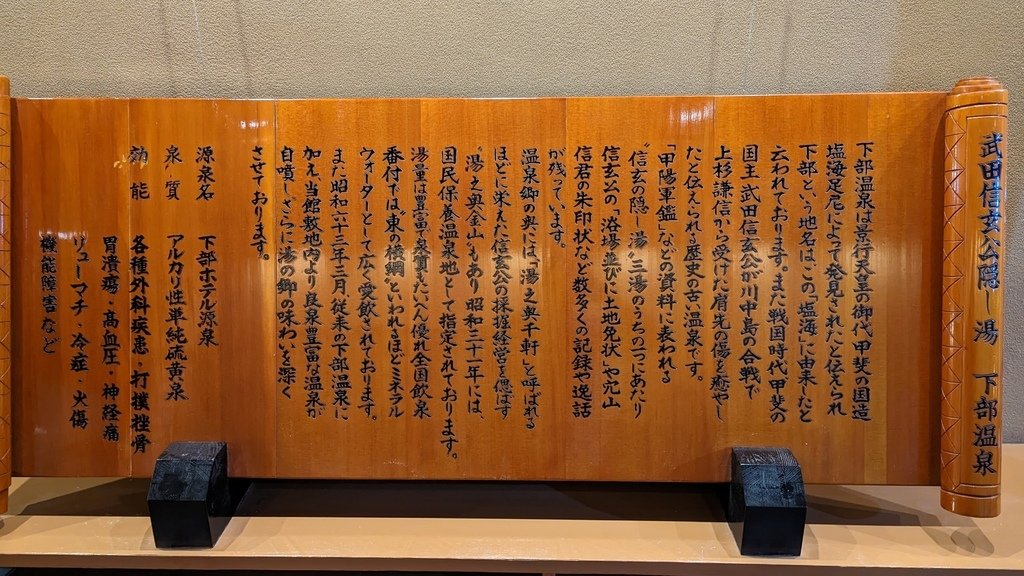 武田信玄公隠し湯　下部温泉
下部温泉は景行天皇の御代、甲斐の国造
塩海足尼によって発見されたと伝えられ
下部という地名はこの「塩海」に由来したと
云われております。また戦国時代甲斐の
国主武田信玄公が川中島の合戦で
上杉謙信から受けた肩先の傷を癒やし
たと伝えられる歴史の古い温泉です。
「甲陽軍鑑」などの資料に表われる
“信玄の隠し湯”三湯のうちの一つにあたり
信玄公の「浴場並びに土地免状」や穴山
信君の朱印状など数多くの記録や逸話
が残っています。
温泉郷の奥には、「湯之奥千軒」と呼ばれる
ほどに栄えた信玄公の採掘経営を偲ばす
“湯之奥金山”もあり昭和三十一年には、
国民保養温泉地として指定されております。
湯量は豊富で泉質もたいへん優れ全国飲泉
番付では“東の横綱”といわれるほどミネラル
ウォーターとして広く愛飲されております。
また昭和六十三年三月、従来の下部温泉に
加え当館敷地内より良泉豊富な温泉が
自噴しさらに湯の郷の味わいを深く
させております。
源泉名　下部ホテル源泉
泉質　アルカリ性単純硫黄泉
効能　各種外科疾患・打撲挫骨
胃潰瘍・高血圧・神経痛
リューマチ・冷症・火傷
機能障害など